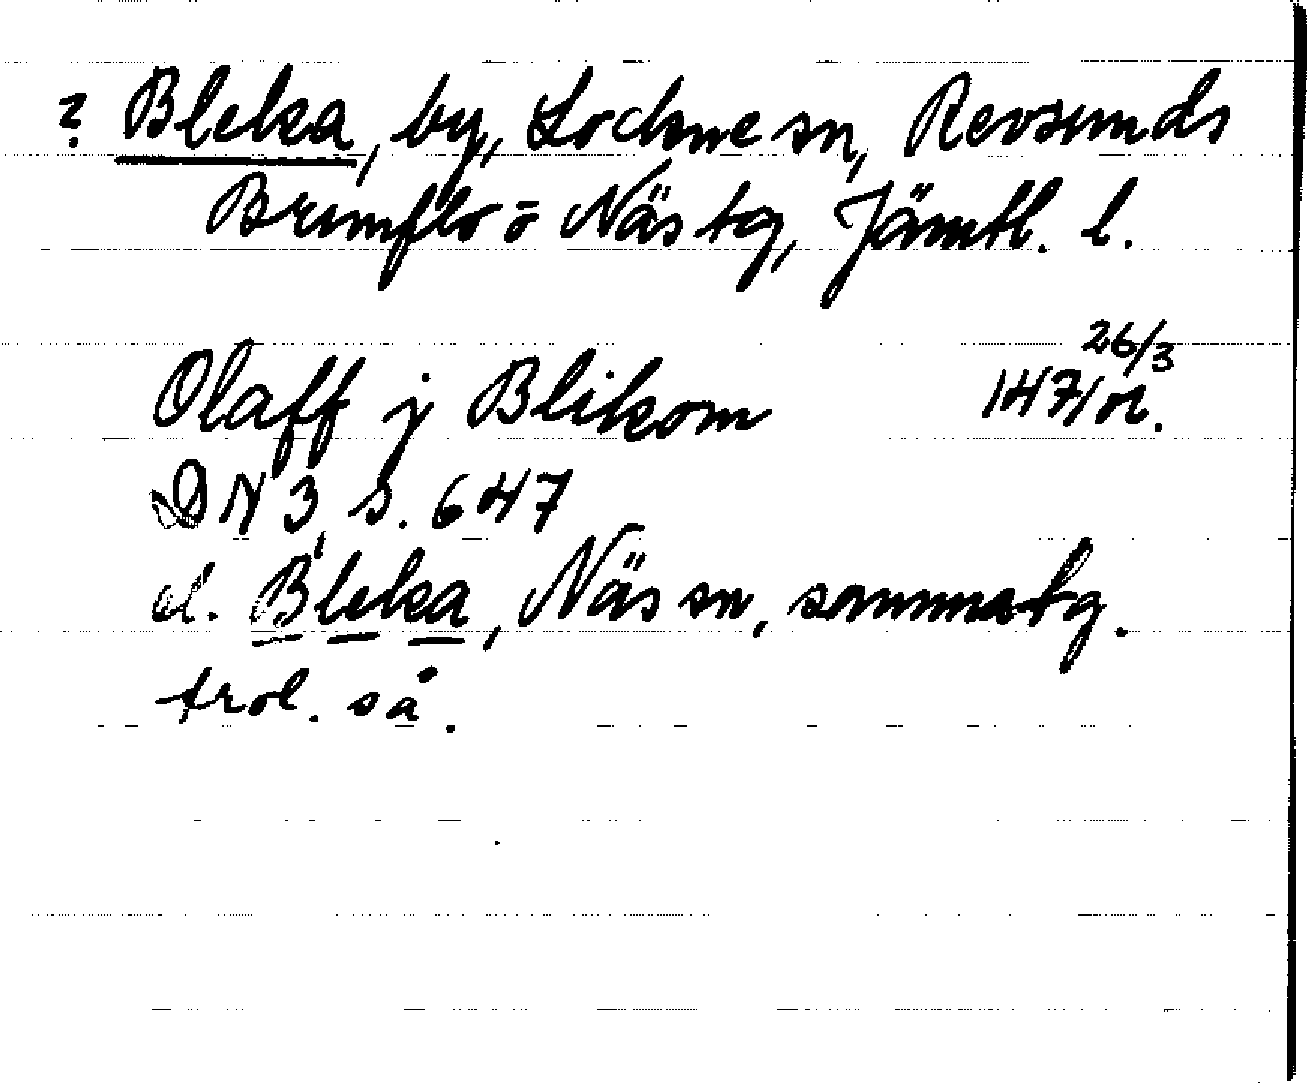 ? Bleka, by, Lockne sn, Revsunds
Brunflo o Näs tg, Jämtl. l.
Olaff j Blikom 26/3 1471 or.
DN 3, s. 647
el. Bleka, Näs sn, samma tg.
trol. så.